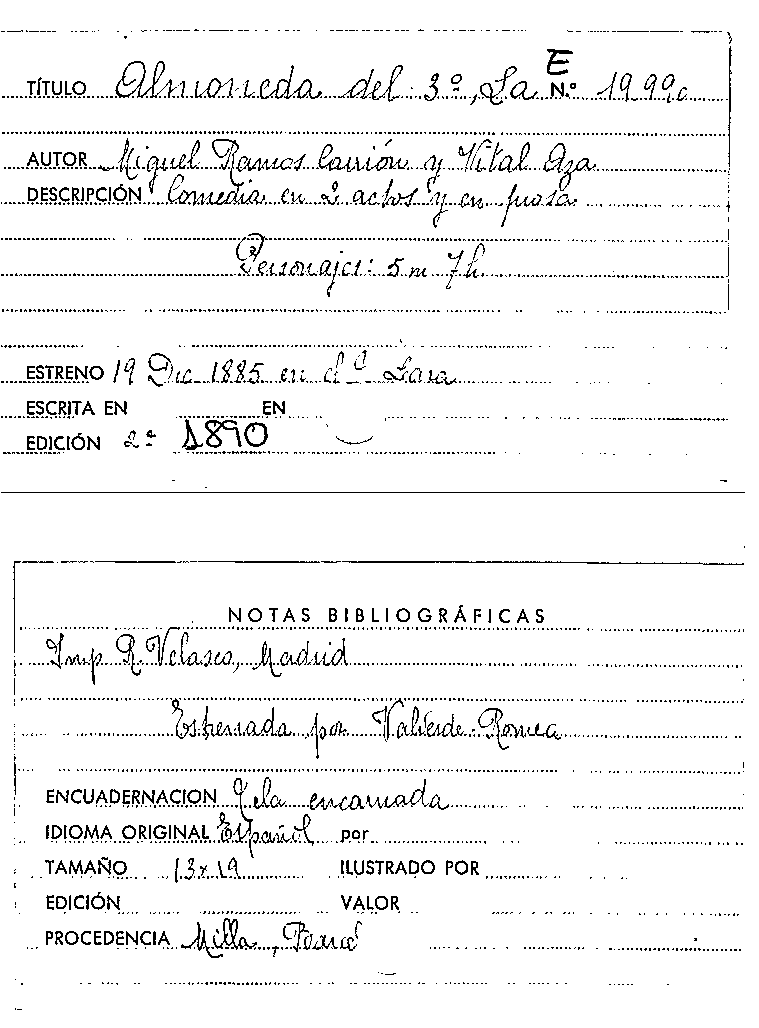 E
TÍTULO Almoneda del 3º, La N.º 1999c
AUTOR Miguel Ramos Carrión y Vital Aza
DESCRIPCIÓN Comedia en 2 actos y en prosa
Personajes: 5 m 7h.
ESTRENO 19 Dic 1885 en el Lara
ESCRITA EN EN
EDICIÓN 2ª 1890
NOTAS BIBLIOGRÁFICAS
Imp R. Velasco, Madrid
Estrenada por Valverde-Romea
ENCUADERNACION Tela encarnada
IDIOMA ORIGINAL Español por
TAMAÑO 13x19 ILUSTRADO POR
EDICIÓN VALOR
PROCEDENCIA Milla,